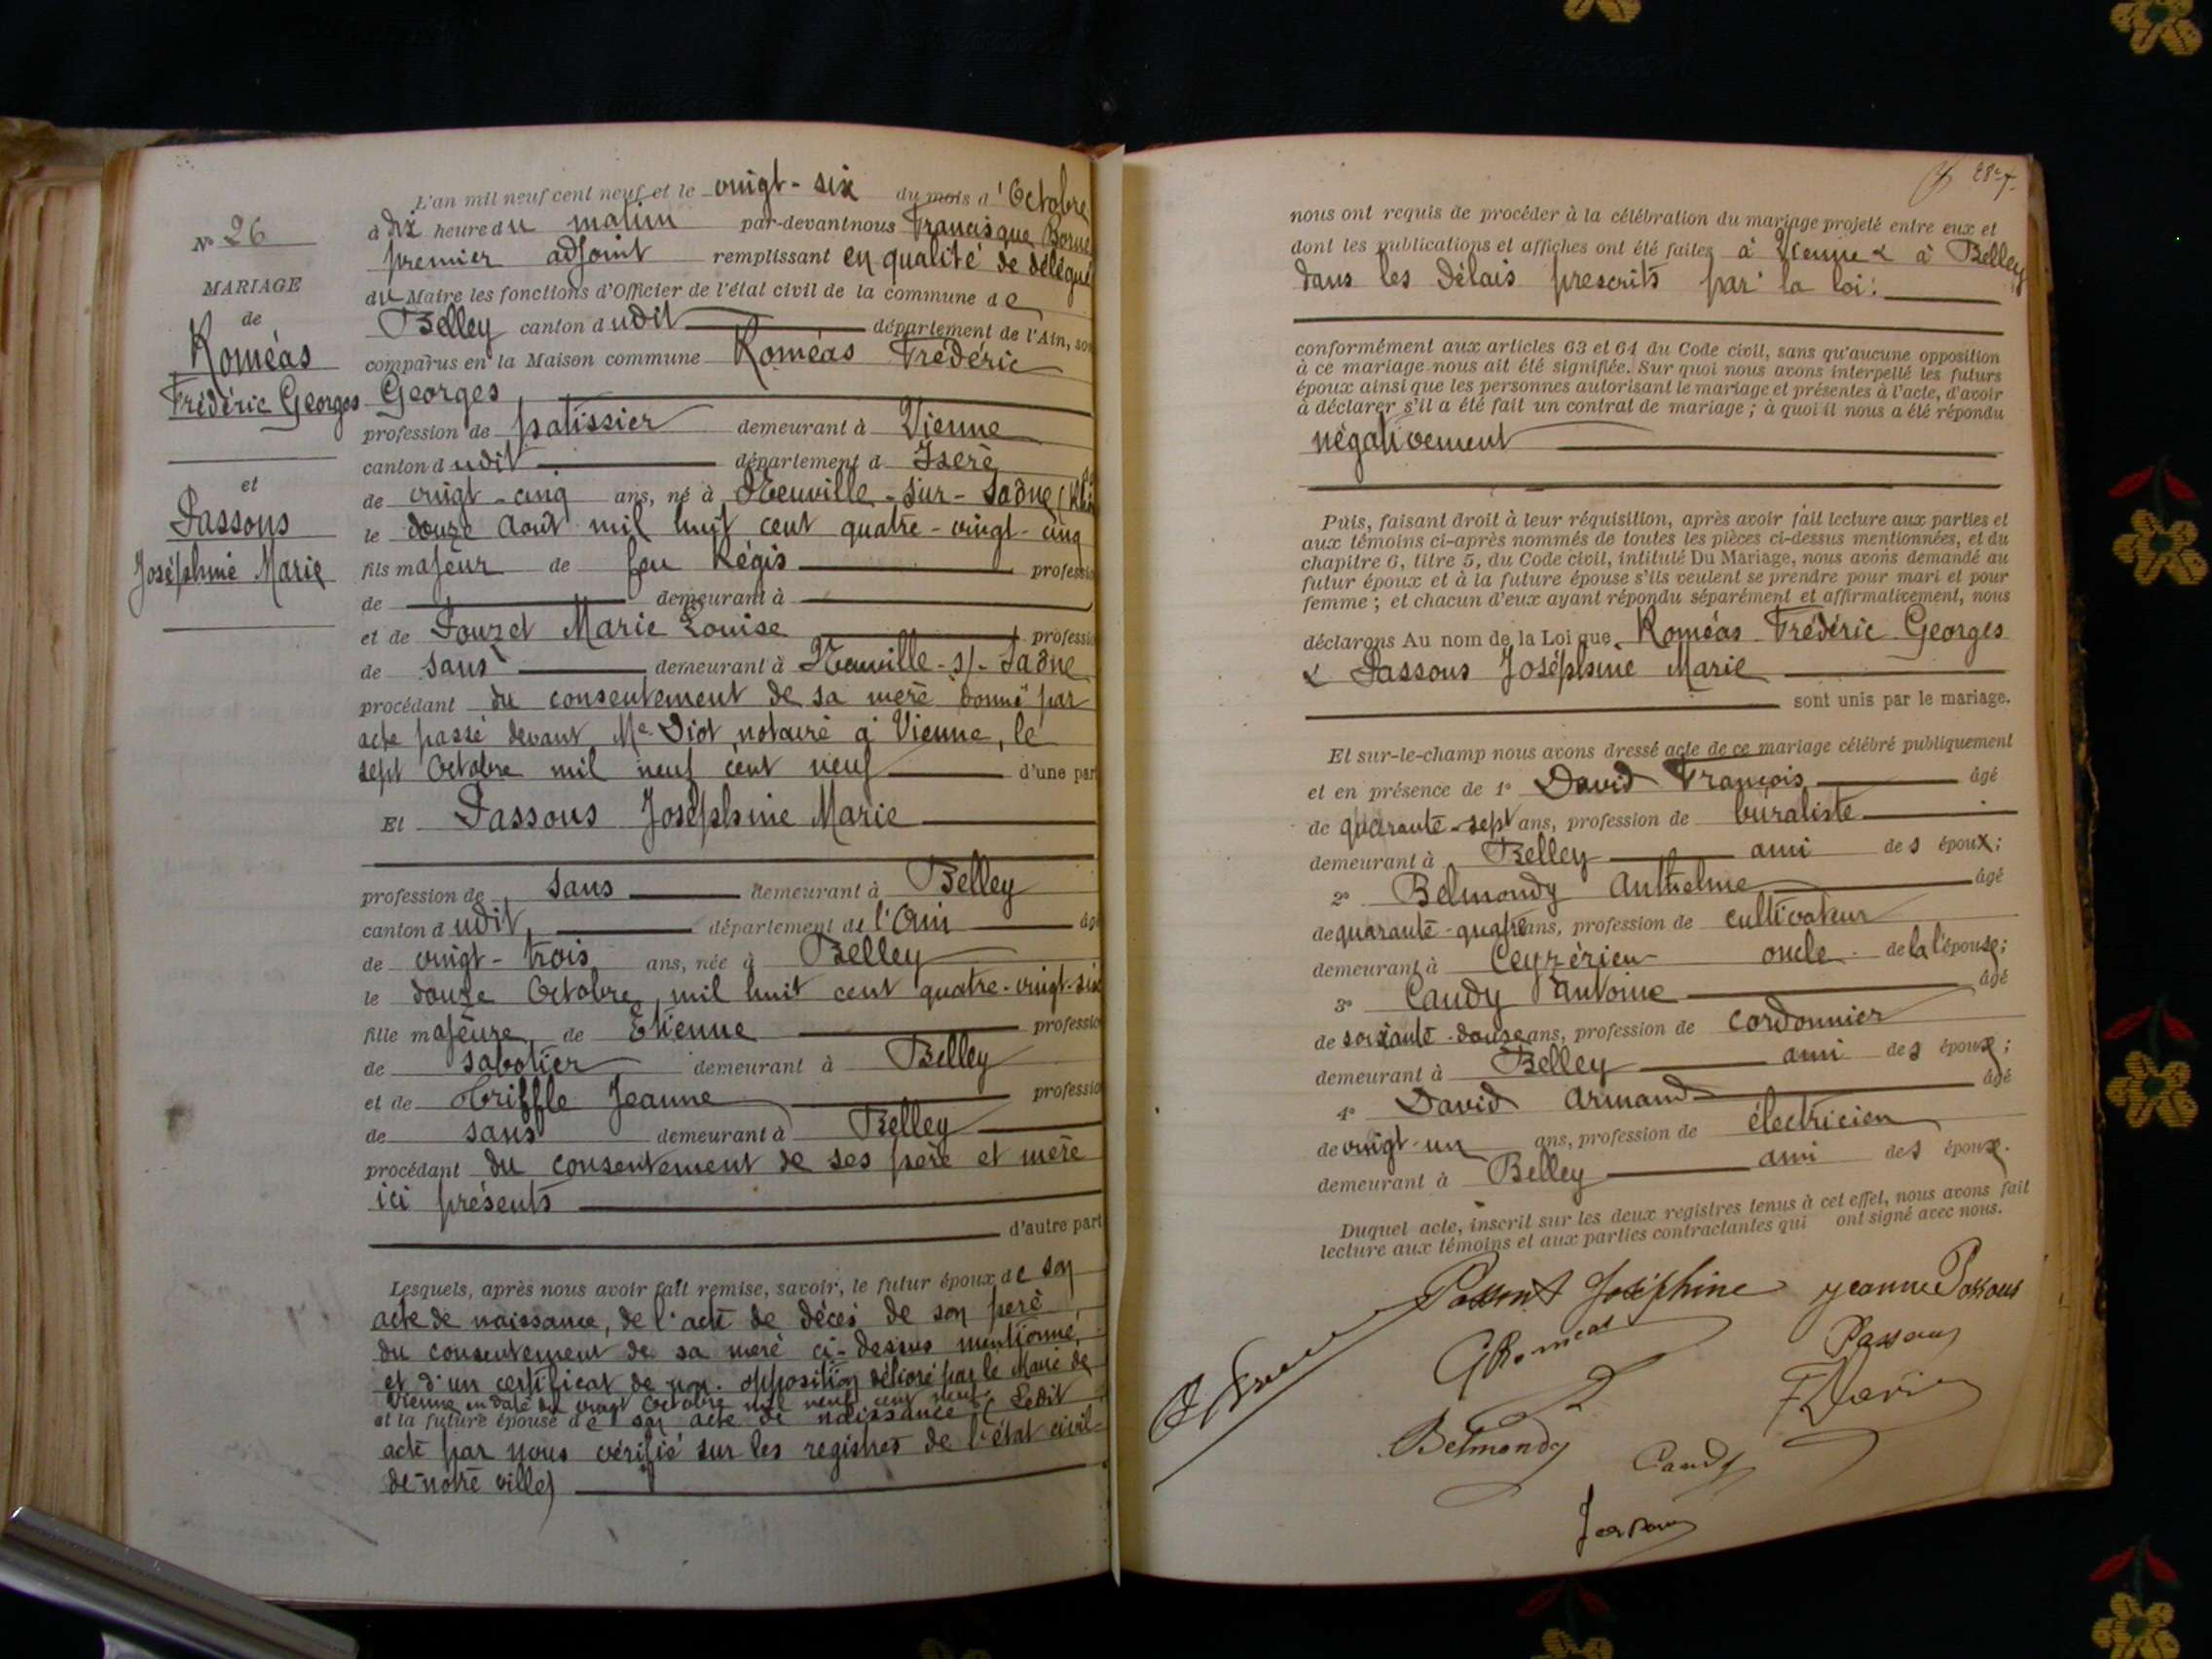 L'an mil neuf cent neuf et le vingt-six du mois d'Octobre
à dix heure du matin par-devant nous Francisque Borne
premier adjoint remplissant en qualité de délégué
du Maire les fonctions d'Officier de l'état civil de la commune de
Belley canton dudit département de l'Ain, son
comparus en la Maison commune Roméas Frédéric
Georges
profession de patissier demeurant à Vienne
canton dudit département d Isère
de vingt-cinq ans, né à Neuville-sur-Saône
le douze Août mil huit cent quatre-vingt-cinq
fils majeur de feu Régis professio
de demeurant à
et de Pouzet Marie Louise professio
de sans demeurant à Neuville-s/-Saône
procédant du consentement de sa mère donné par
acte passé devant Me Diot, notaire à Vienne, le
sept Octobre mil neuf cent neuf d'une part
Et Passous Joséphine Marie
profession de sans demeurant à Belley
canton dudit département de l'Ain âgé
de vingt-trois ans, née à Belley
le douze Octobre, mil huit cent quatre-vingt-six
fille majeure, de Etienne professio
de sabotier demeurant à Belley
et de Triffle Jeanne professio
de sans demeurant à Belley
procédant du consentement de ses père et mère
ici présents
d'autre part
Lesquels, après nous avoir fait remise, savoir, le futur époux de son
acte de naissance, de l'acte de décès de son père,
du consentement de sa mère ci-dessus mentionné,
et d'un certificat de non-opposition délivré par le Maire de
Vienne en date du vingt Octobre mil neuf cent neuf
et la future épouse de son acte de naissance (Ledit
acte par nous vérifié sur les registres de l'état civil
de notre ville)
No 26
MARIAGE
de
Roméas
Frédéric Georges
et
Passous
Joséphine Marie
nous ont requis de procéder à la célébration du mariage projeté entre eux et
dont les publications et affiches ont été faites à Vienne & à Belley
dans les délais prescrits par la loi:
conformément aux articles 63 et 64 du Code civil, sans qu'aucune opposition
à ce mariage nous ait été signifiée. Sur quoi nous avons interpellé les futurs
époux ainsi que les personnes autorisant le mariage et présentes à l'acte, d'avoir
à déclarer s'il a été fait un contrat de mariage ; à quoi il nous a été répondu
négativement
Puis, faisant droit à leur réquisition, après avoir fait lecture aux parties et
aux témoins ci-après nommés de toutes les pièces ci-dessus mentionnées, et du
chapitre 6, titre 5, du Code civil, intitulé Du Mariage, nous avons demandé au
futur époux et à la future épouse s'ils veulent se prendre pour mari et pour
femme ; et chacun d'eux ayant répondu séparément et affirmativement, nous
déclarons Au nom de la Loi que Roméas Frédéric Georges
& Passous Joséphine Marie
sont unis par le mariage.
Et sur-le-champ nous avons dressé acte de ce mariage célébré publiquement
et en présence de 1o David François âgé
de quarante-sept ans, profession de buraliste
demeurant à Belley ami des époux ;
2o Belmondy Anthelme âgé
de quarante-quatre ans, profession de cultivateur
demeurant à Ceyzérieu oncle de la l'épouse ;
3o Candy Antoine âgé
de soixante-douze ans, profession de cordonnier
demeurant à Belley ami des époux ;
4o David Armand âgé
de vingt-un ans, profession de électricien
demeurant à Belley ami des époux.
Duquel acte, inscrit sur les deux registres tenus à cet effet, nous avons fait
lecture aux témoins et aux parties contractantes qui ont signé avec nous.
Passous Joséphine Jeanne Passous
GRomeas Passous
F David
Belmondy Candy